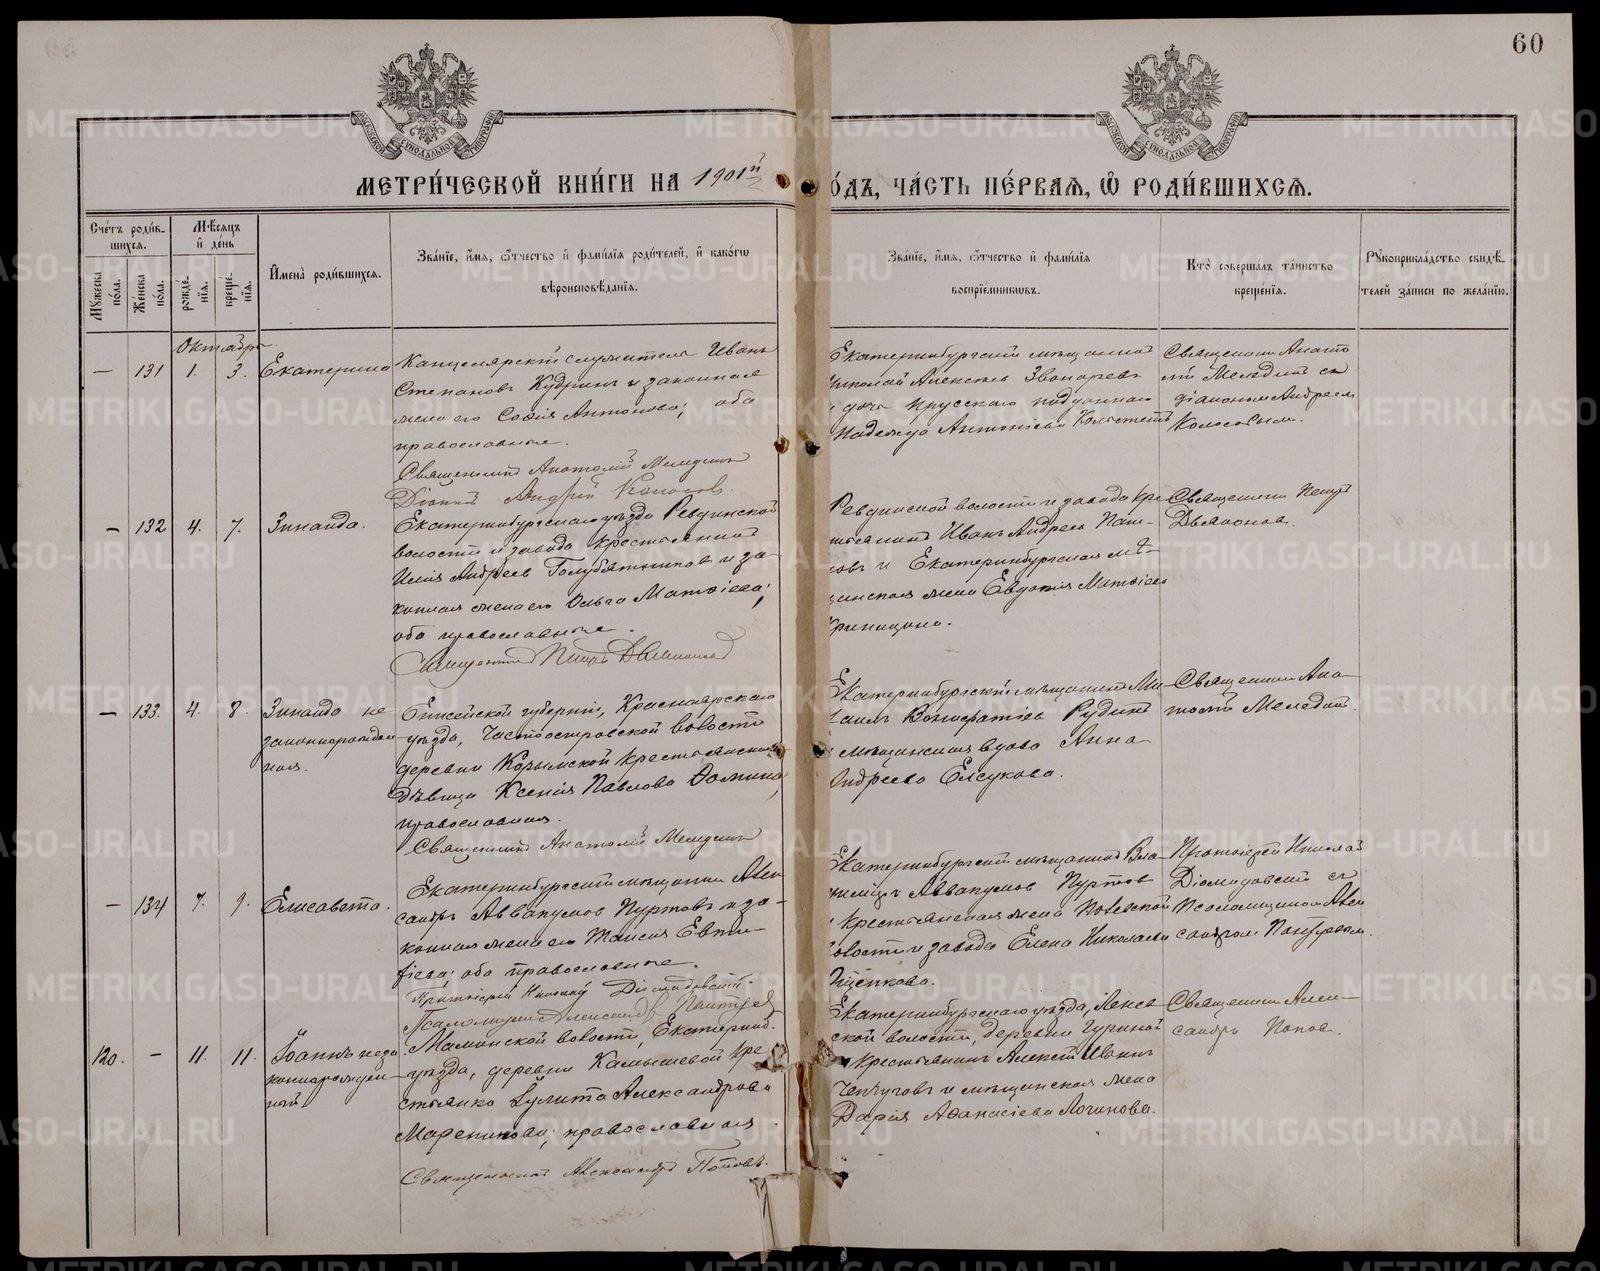 60
МЕТРИ́ЧЕСКОЙ КНИ́ГИ НА 1901й
О́ДЪ, ЧА́СТЬ ПЕ́РВАЯ, Ѡ РОДИ́ВШИХСЯ.
Сче́тъ роди́в-
шихся.
Му́жеска по́ла.
Же́нска по́ла.
Мѣ́сяцъ
и де́нь
рожде́-
нія.
креще́-
нія.
Имена̀ роди́вшихся.
Зва́ніе, и́мя, ѻ́тчество и фами́лія роди́телей, и како́гѡ
вѣроисповѣ́данія.
Зва́ніе, и́мя, ѻ́тчество и фами́лія
воспріе́мниковъ.
Кто̀ соверша́лъ та́инство
креще́нія.
Рукоприкла́дство свидѣ́-
телей за́писи по жела́нію.
Октябрь
— 131 1. 3. Екатерина
Канцелярскій служитель Иванъ
Степановъ Кудринъ и законная
жена его Софія Антонова; оба
православные.
Священникъ Анатолій Мелединъ
Діаконъ Андрей Колосовъ.
Екатеринбургскій мѣщанинъ
Николай Алексѣевъ Звонаревъ
и дочь прусскаго подданнаго
Надежда Антоніева
Священникъ Анато
лій Мелединъ съ
діакономъ Андреемъ
Колосовымъ.
— 132 4. 7. Зинаида.
Екатеринбургскаго уѣзда Ревдинской
волости и завода крестьянинъ
Илія Андреевъ Голубятниковъ и за-
конная жена его Ольга Матѳіева;
оба православные.
Священникъ Петръ Дьяконовъ
Ревдинской волости и завода кре-
стьянинъ Иванъ Андреевъ
овъ и Екатеринбургская мѣ-
щанская жена Евдокія Матѳіева
Священникъ Петръ
Дьяконовъ.
— 133. 4. 8. Зинаида не
законнорожден
ная.
Енисейской губерніи, Красноярскаго
уѣзда, Частоостровской волости
деревни крестьянская
дѣвица Ксенія Павлова
православная.
Священникъ Анатолій Мелединъ
Екатеринбургскій мѣщанинъ Ми-
хаилъ Вонифатіевъ Рудинъ
и мѣщанская вдова Анна
Андреева Елсукова.
Священникъ Ана-
толій Мелединъ.
— 134 7. 9. Елисавета.
Екатеринбургскій мѣщанинъ Алек
сандръ Аввакумовъ Пуртовъ и за-
конная жена его Таисія Евти-
фіева; оба православные.
Протоіерей Николай Діомидовскій.
Псаломщикъ Александръ
Екатеринбургскій мѣщанинъ Вла-
димиръ Аввакумовъ Пуртовъ
и крестьянская жена
волости и завода Елена Николаева
Протоіерей Николай
Діомидовскій съ
Псаломщикомъ Алек
сандромъ
120. — 11. 11. Іоаннъ неза
коннорожден
ный.
Маминской волости, Екатеринб.
уѣзда, деревни Камышевой кре
стьянка Іулитта Александрова
православная.
Священникъ Александръ Поповъ.
Екатеринбургскаго уѣзда,
ской волости, деревни
крестьянинъ Алексѣй Ивановъ
и мѣщанская жена
Дарія Аѳанасіева Логинова.
Священникъ Алек-
сандръ Поповъ.
METRIKI.GASO-URAL.RU